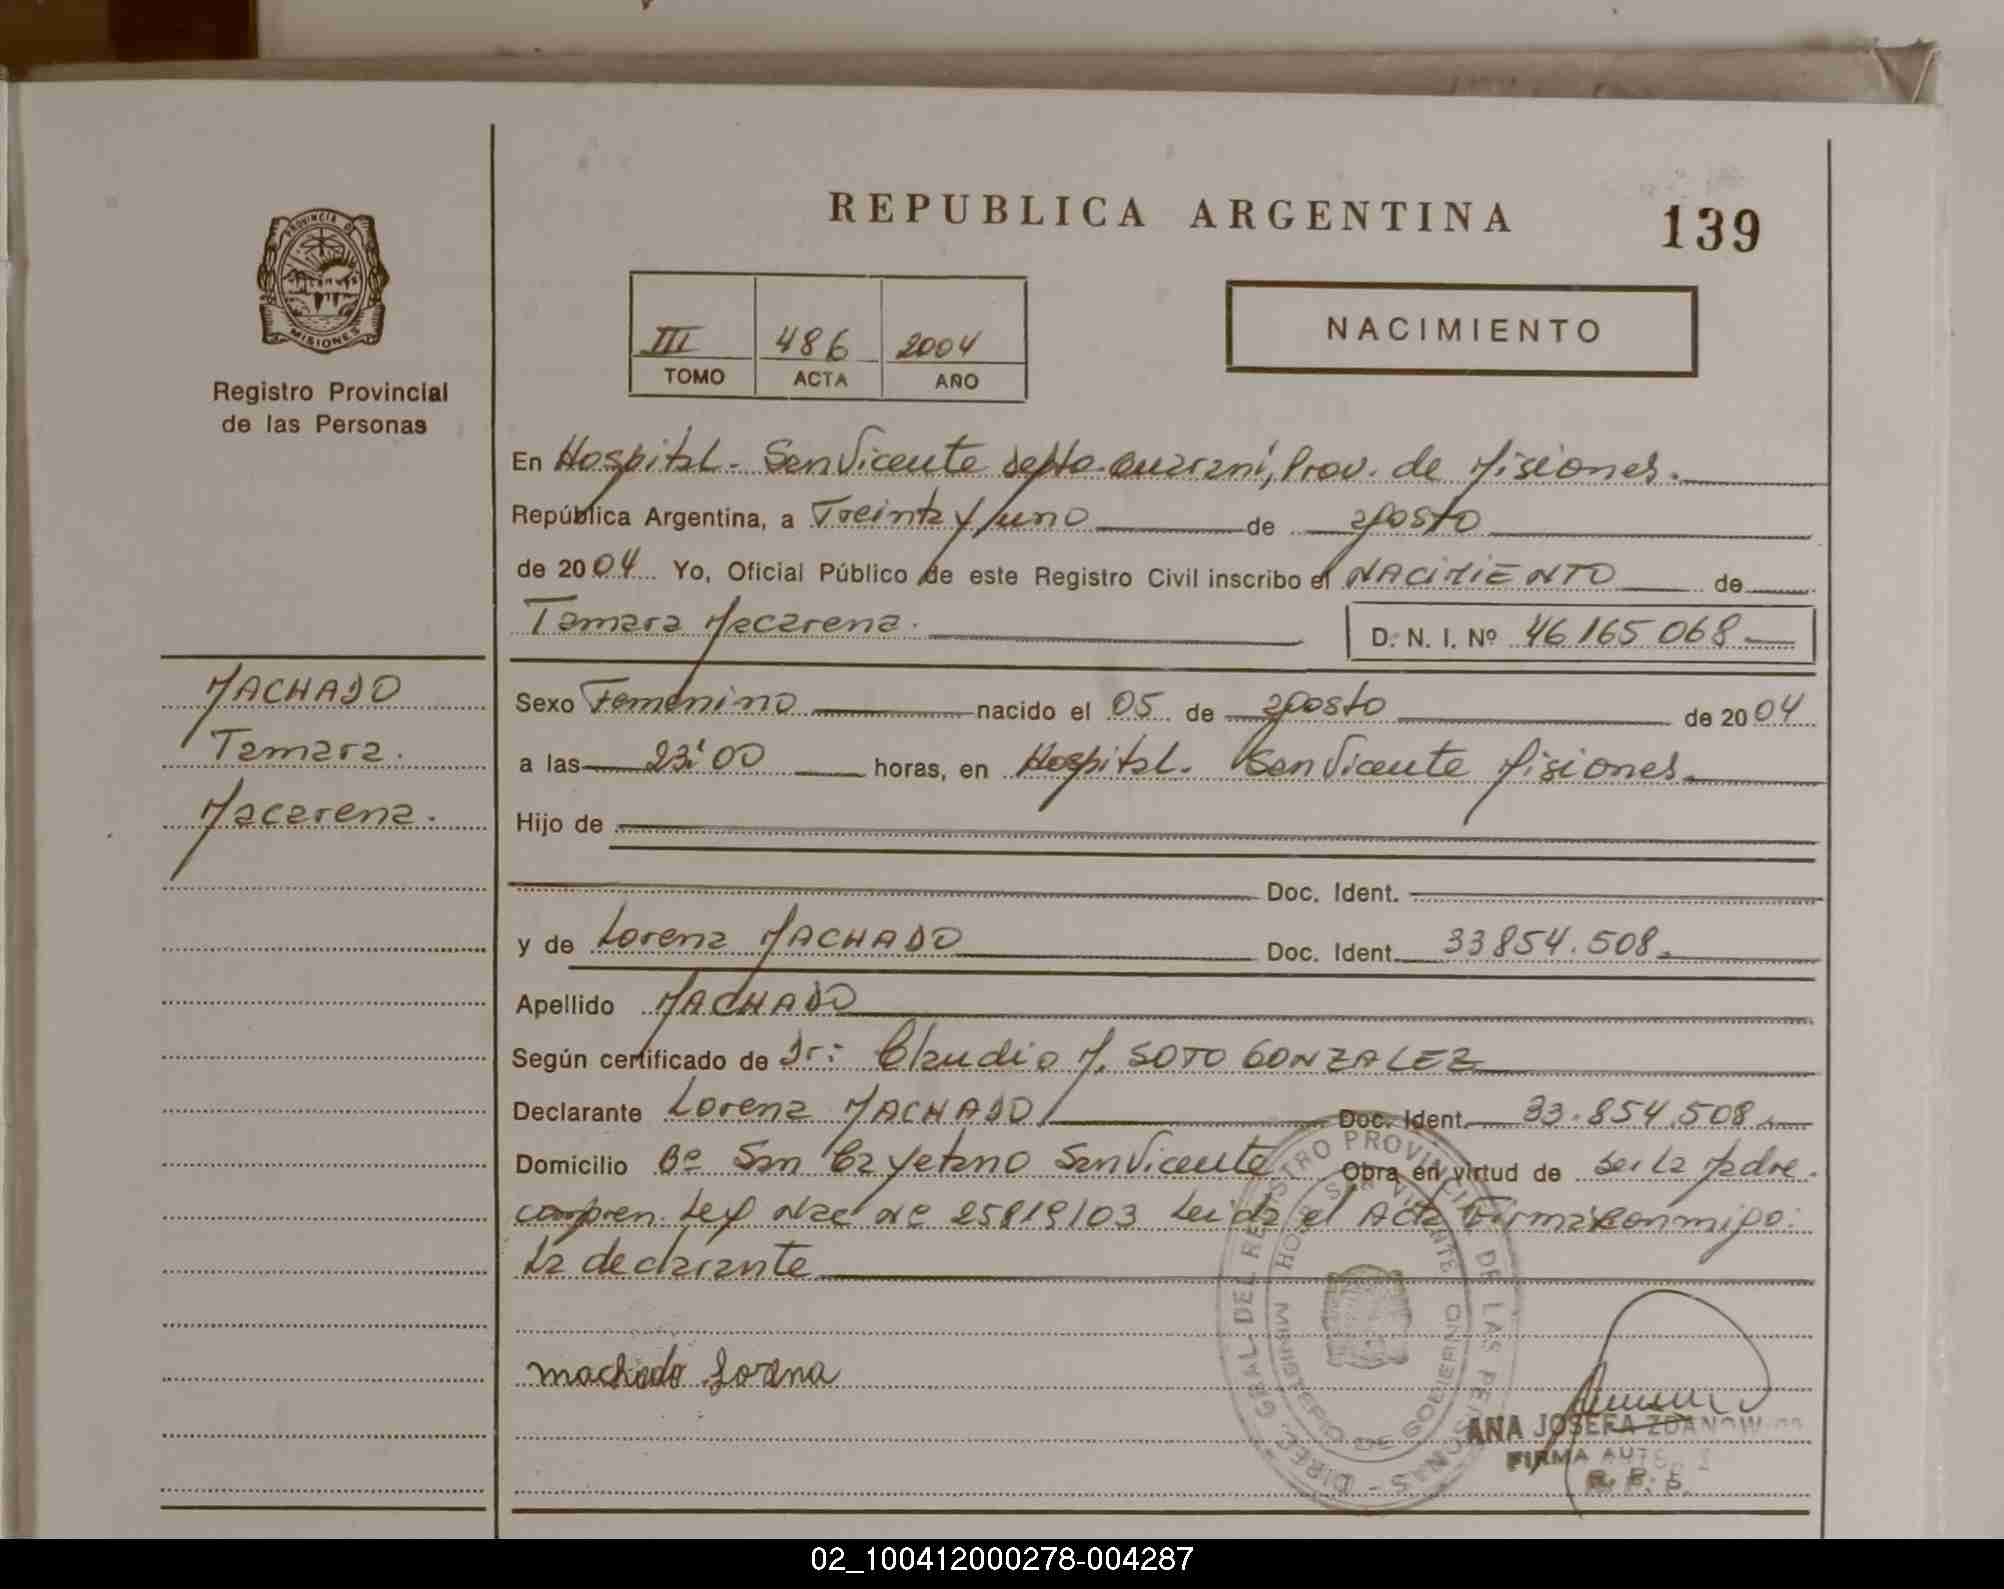 REPUBLICA ARGENTINA
139
PROVINCIA DE
MISIONES
Registro Provincial
de las Personas
III 486 2004
TOMO ACTA AÑO
NACIMIENTO
En Hospital. San Vicente Depto. Guaraní, Prov. de Misiones.
República Argentina, a Treinta y uno de agosto
de 2004 Yo, Oficial Público de este Registro Civil inscribo el NACIMIENTO de
Tamara Macarena.
D. N. I. Nº 46165068
MACHADO
Tamara.
Macarena.
Sexo Femenino nacido el 05 de agosto de 2004
a las 23:00 horas, en Hospital. San Vicente Misiones.
Hijo de
Doc. Ident.
y de Lorena MACHADO Doc. Ident. 33854.508.
Apellido MACHADO
Según certificado de Dr: Claudio M. SOTO GONZALEZ
Declarante Lorena MACHADO Doc. Ident. 33.854.508.
Domicilio Bº San Cayetano San Vicente Obra en virtud de ser la Madre.
compren. Ley Nac Nº 25819/03 Leida el Acta Firma conmigo:
La declarante
machado Lorena
DIREC. GRAL. DEL REGISTRO PROVINCIAL DE LAS PERSONAS -
HOSP. SAN VICENTE
MINISTERIO DE GOBIERNO
ANA JOSEFA
FIRMA
R. P. S.
02_100412000278-004287